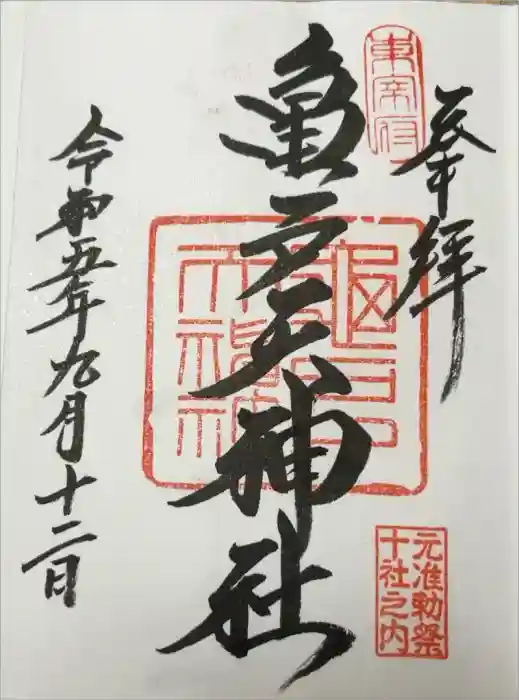 奉拝
東宰府
亀戸天神社
元准勅祭
十社之内
令和五年九月十二日